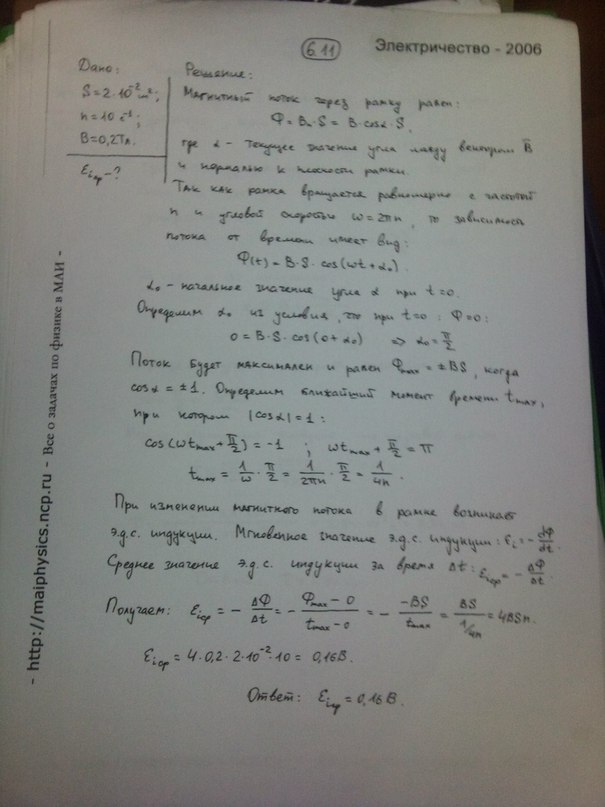 6.11
Электричество - 2006
Дано:
S = 2·10⁻² м²;
n = 10 с⁻¹;
B = 0,2 Тл.
Ɛi ср - ?
Решение:
Магнитный поток через рамку равен:
Φ = Bn·S = B·cosα·S,
где α - текущее значение угла между вектором B̄
и нормалью к плоскости рамки.
Так как рамка вращается равномерно с частотой
n и угловой скоростью ω = 2πn, то зависимость
потока от времени имеет вид:
Φ(t) = B·S·cos(ωt + α₀).
α₀ - начальное значение угла α при t = 0.
Определим α₀ из условия, что при t = 0 : Φ = 0:
0 = B·S·cos(0 + α₀) ⇒ α₀ = π/2
Поток будет максимален и равен Φmax = ±BS, когда
cosα = ±1. Определим ближайший момент времени tmax,
при котором |cosα| = 1:
cos(ωtmax + π/2) = -1 ; ωtmax + π/2 = π
tmax = 1/ω · π/2 = 1/2πn · π/2 = 1/4n.
При изменении магнитного потока в рамке возникает
э.д.с. индукции. Мгновенное значение э.д.с. индукции: Ɛi = - dΦ/dt.
Среднее значение э.д.с. индукции за время Δt: Ɛi ср = - ΔΦ/Δt.
Получаем: Ɛi ср = - ΔΦ/Δt = - (Φmax - 0)/(tmax - 0) = - (-BS)/tmax = BS/(1/4n) = 4BSn.
Ɛi ср = 4·0,2·2·10⁻²·10 = 0,16 В.
Ответ: Ɛi ср = 0,16 В.
- http://maiphysics.ncp.ru - Все о задачах по физике в МАИ -